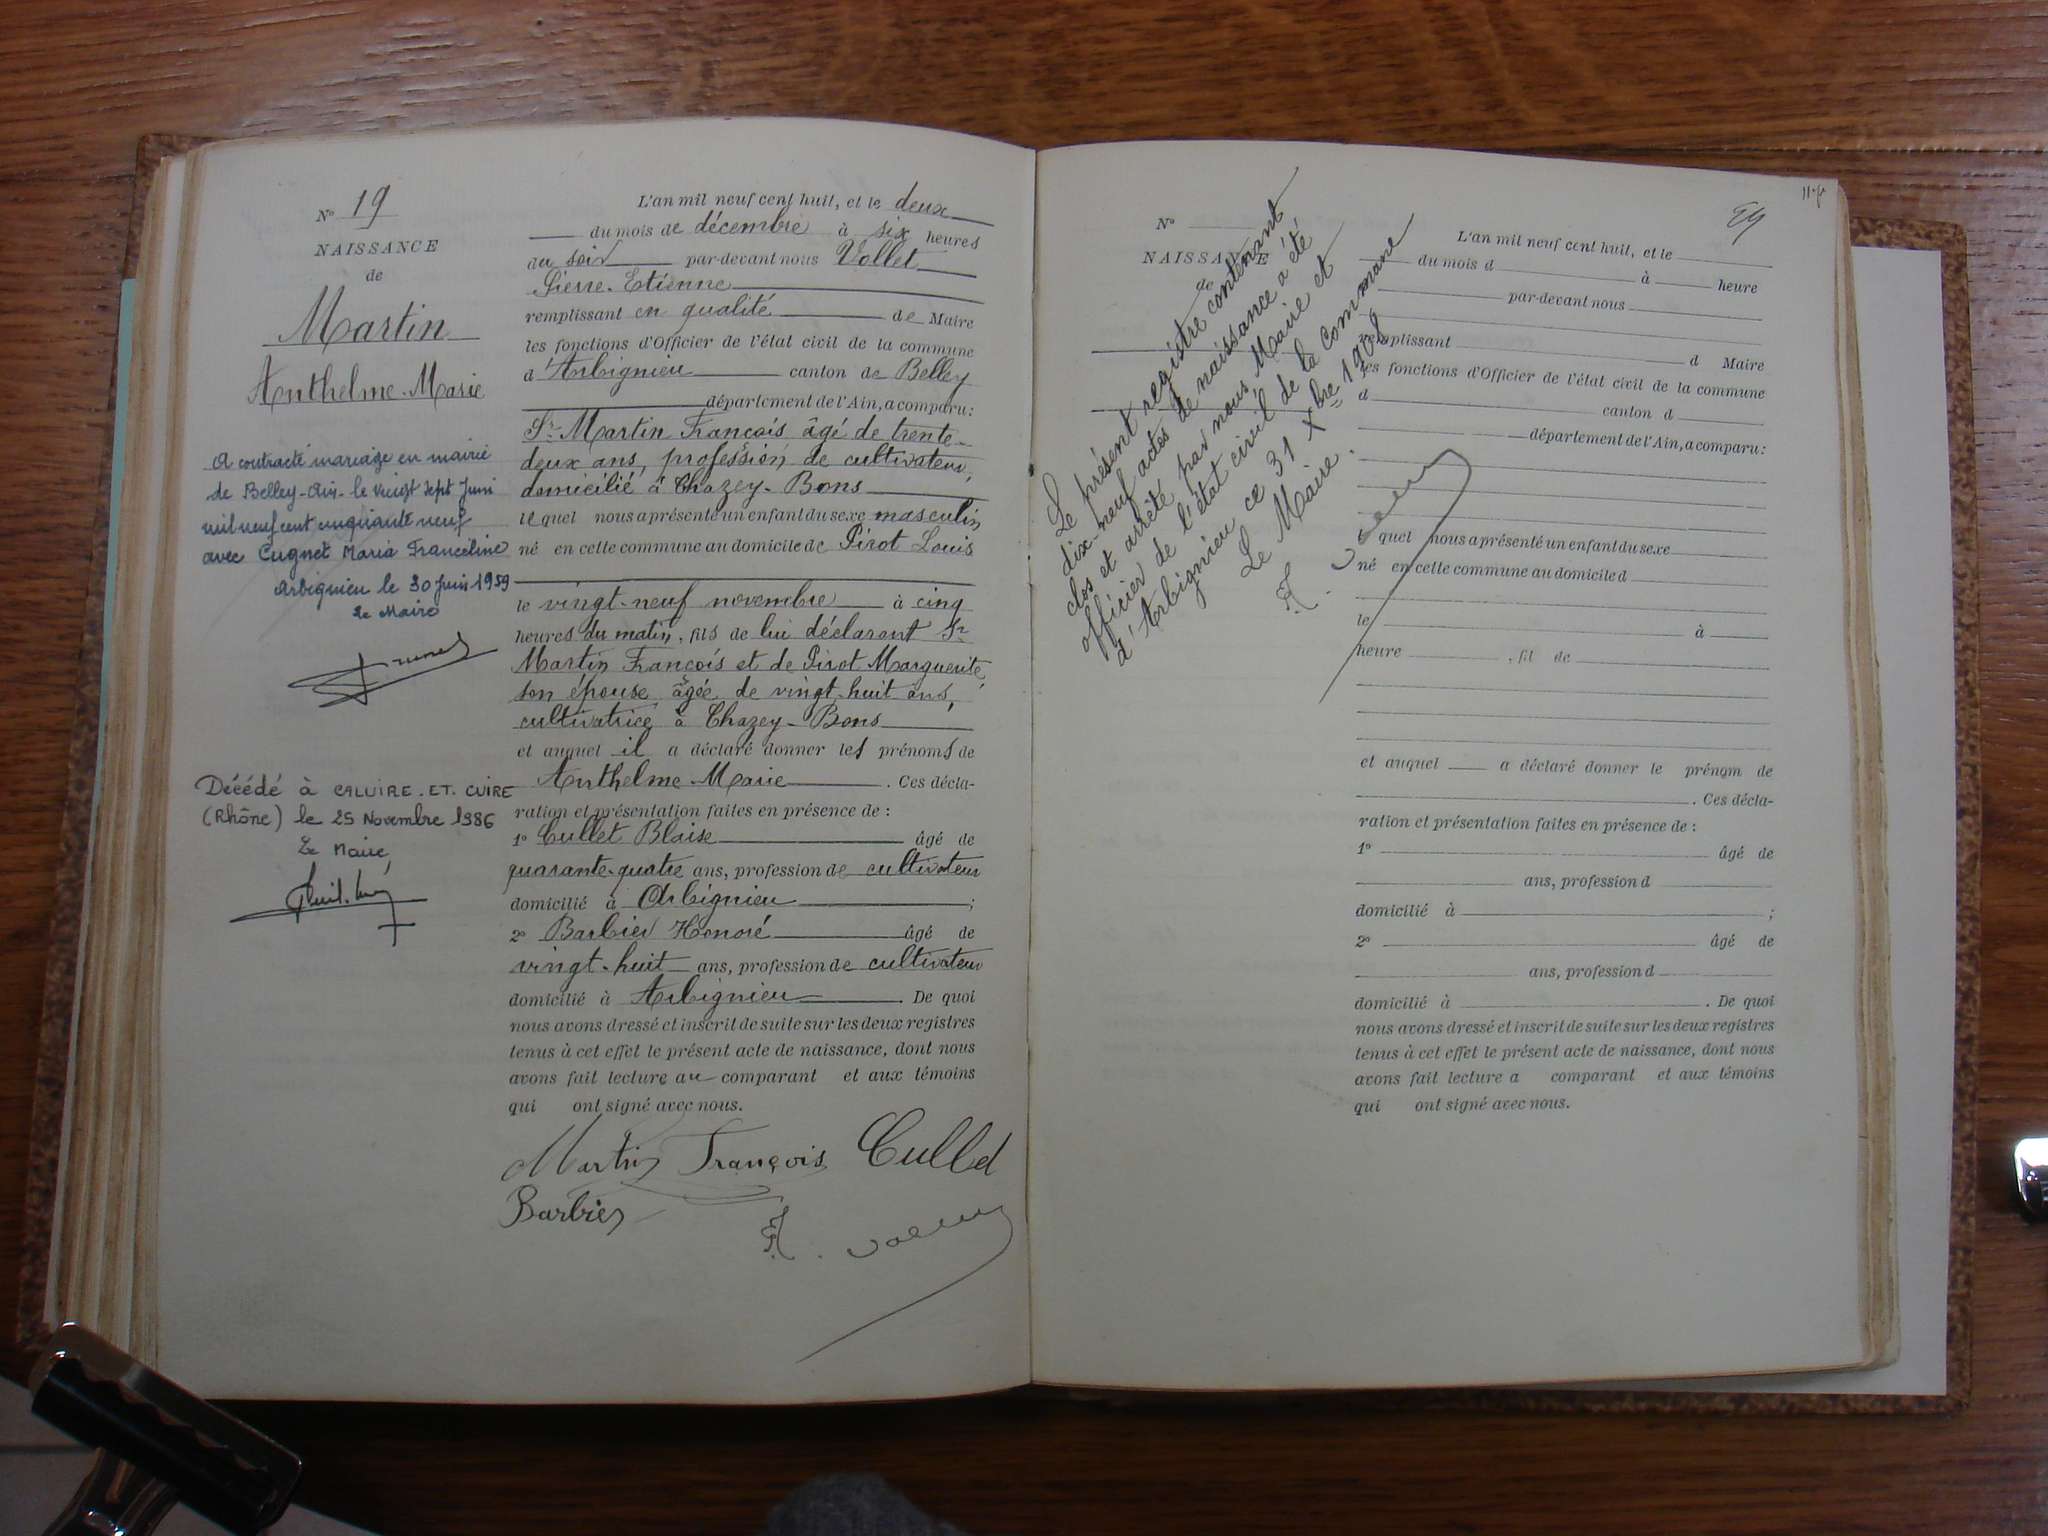 N° 19
NAISSANCE
de
Martin
Anthelme-Marie
A contracté mariage en mairie
de Belley-Ain- le vingt sept Juin
mil neuf cent cinquante neuf
avec Cugnet Maria Franceline
Arbignieu le 30 juin 1959
Le Maire
Décédé à CALUIRE.ET.CUIRE
(Rhône) le 25 Novembre 1986
Le Maire,
L'an mil neuf cent huit, et le deux
du mois de décembre à six heures
du soir par-devant nous Vollet
Pierre-Etienne
remplissant en qualité de Maire
les fonctions d'Officier de l'état civil de la commune
d'Arbignieu canton de Belley
département de l'Ain, a comparu:
Sr Martin François âgé de trente-
deux ans, profession de cultivateur,
domicilié à Chazey-Bons
lequel nous a présenté un enfant du sexe masculin
né en cette commune au domicile de Pirot Louis
le vingt-neuf novembre à cinq
heures du matin, fils de lui déclarant Sr
Martin François et de Pirot Marguerite,
son épouse, âgée de vingt-huit ans,
cultivatrice à Chazey-Bons
et auquel il a déclaré donner les prénoms de
Anthelme-Marie. Ces décla-
ration et présentation faites en présence de :
1° Cullet Blaise âgé de
quarante-quatre ans, profession de cultivateur
domicilié à Arbignieu ;
2° Barbier Honoré âgé de
vingt-huit ans, profession de cultivateur
domicilié à Arbignieu. De quoi
nous avons dressé et inscrit de suite sur les deux registres
tenus à cet effet le présent acte de naissance, dont nous
avons fait lecture au comparant et aux témoins
qui ont signé avec nous.
Martin François Cullet
Barbier
N°
NAISSANCE
de
Le présent registre contenant
dix-neuf actes de naissance a été
clos et arrêté par nous, Maire et
officier de l'état civil de la Commune
d'Arbignieu ce 31 Xbre 1908
Le Maire.
L'an mil neuf cent huit, et le
du mois d à heure
par-devant nous
remplissant d Maire
les fonctions d'Officier de l'état civil de la commune
d canton d
département de l'Ain, a comparu:
quel nous a présenté un enfant du sexe
né en cette commune au domicile d
le à
heure , fil de
et auquel a déclaré donner le prénom de
. Ces décla-
ration et présentation faites en présence de :
1° âgé de
ans, profession d
domicilié à ;
2° âgé de
ans, profession d
domicilié à . De quoi
nous avons dressé et inscrit de suite sur les deux registres
tenus à cet effet le présent acte de naissance, dont nous
avons fait lecture a comparant et aux témoins
qui ont signé avec nous.